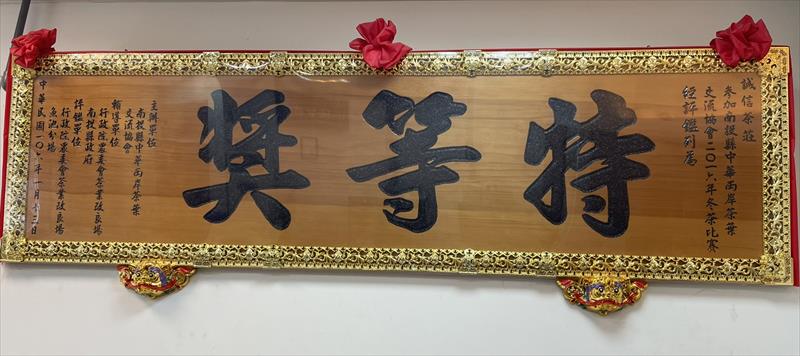 誠信茶莊
參加南投縣中華兩岸茶葉
交流協會二〇一六年冬茶比賽
經評鑑列為
特等獎
主辦單位
南投縣中華兩岸茶葉
交流協會
輔導單位
行政院農委會茶業改良場
南投縣政府
評鑑單位
行政院農委會茶業改良場
魚池分場